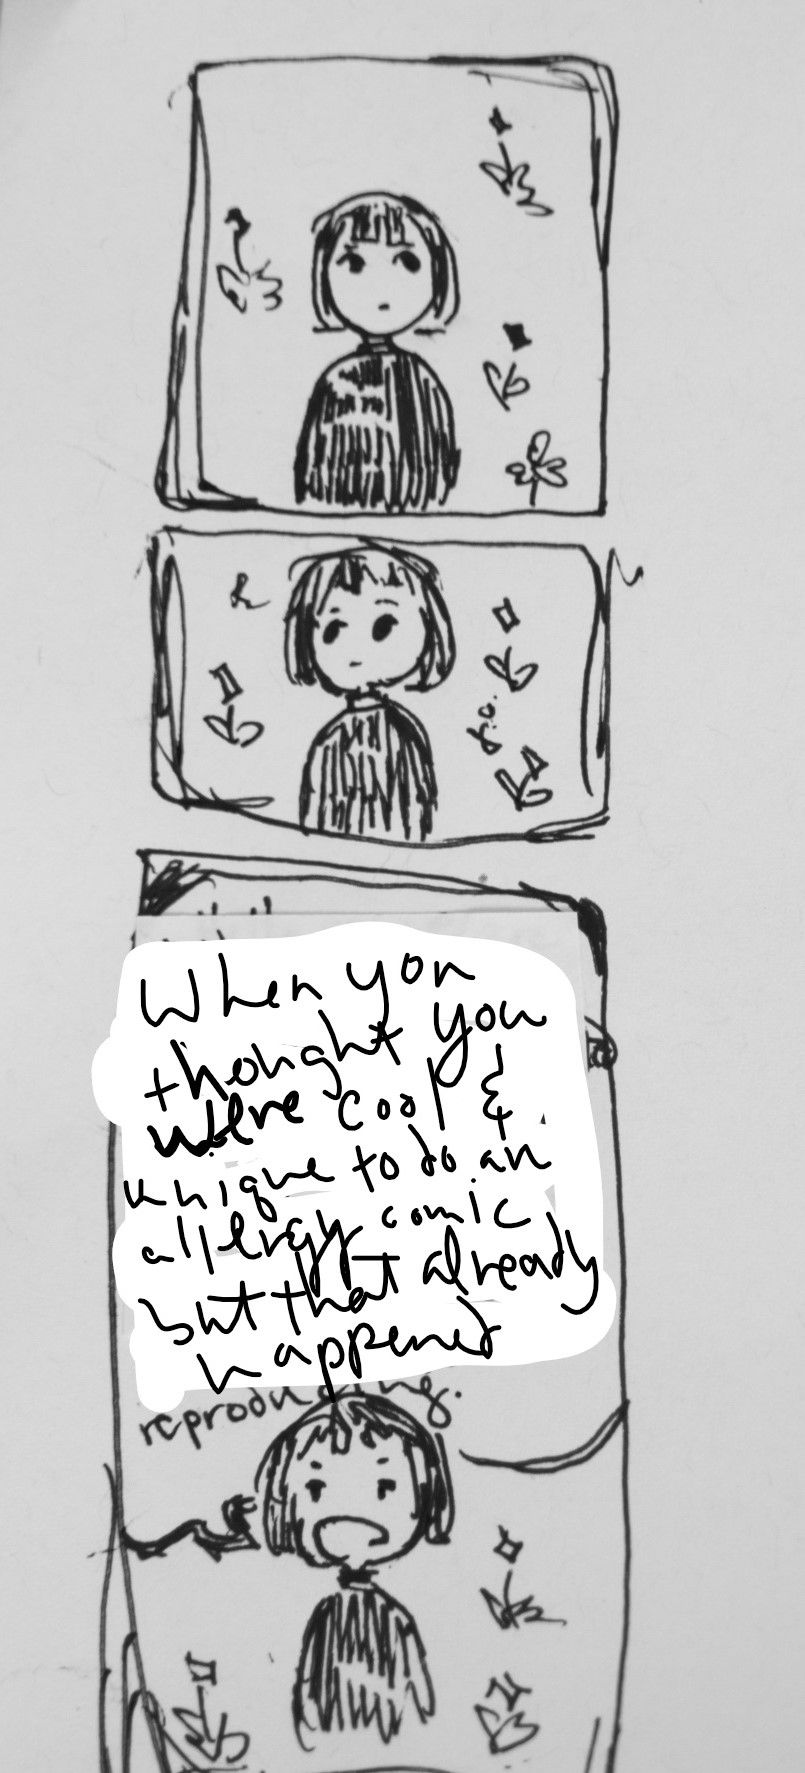 When you
thought you
were cool &
unique to do an
allergy comic
but that already
happened
reproducing.